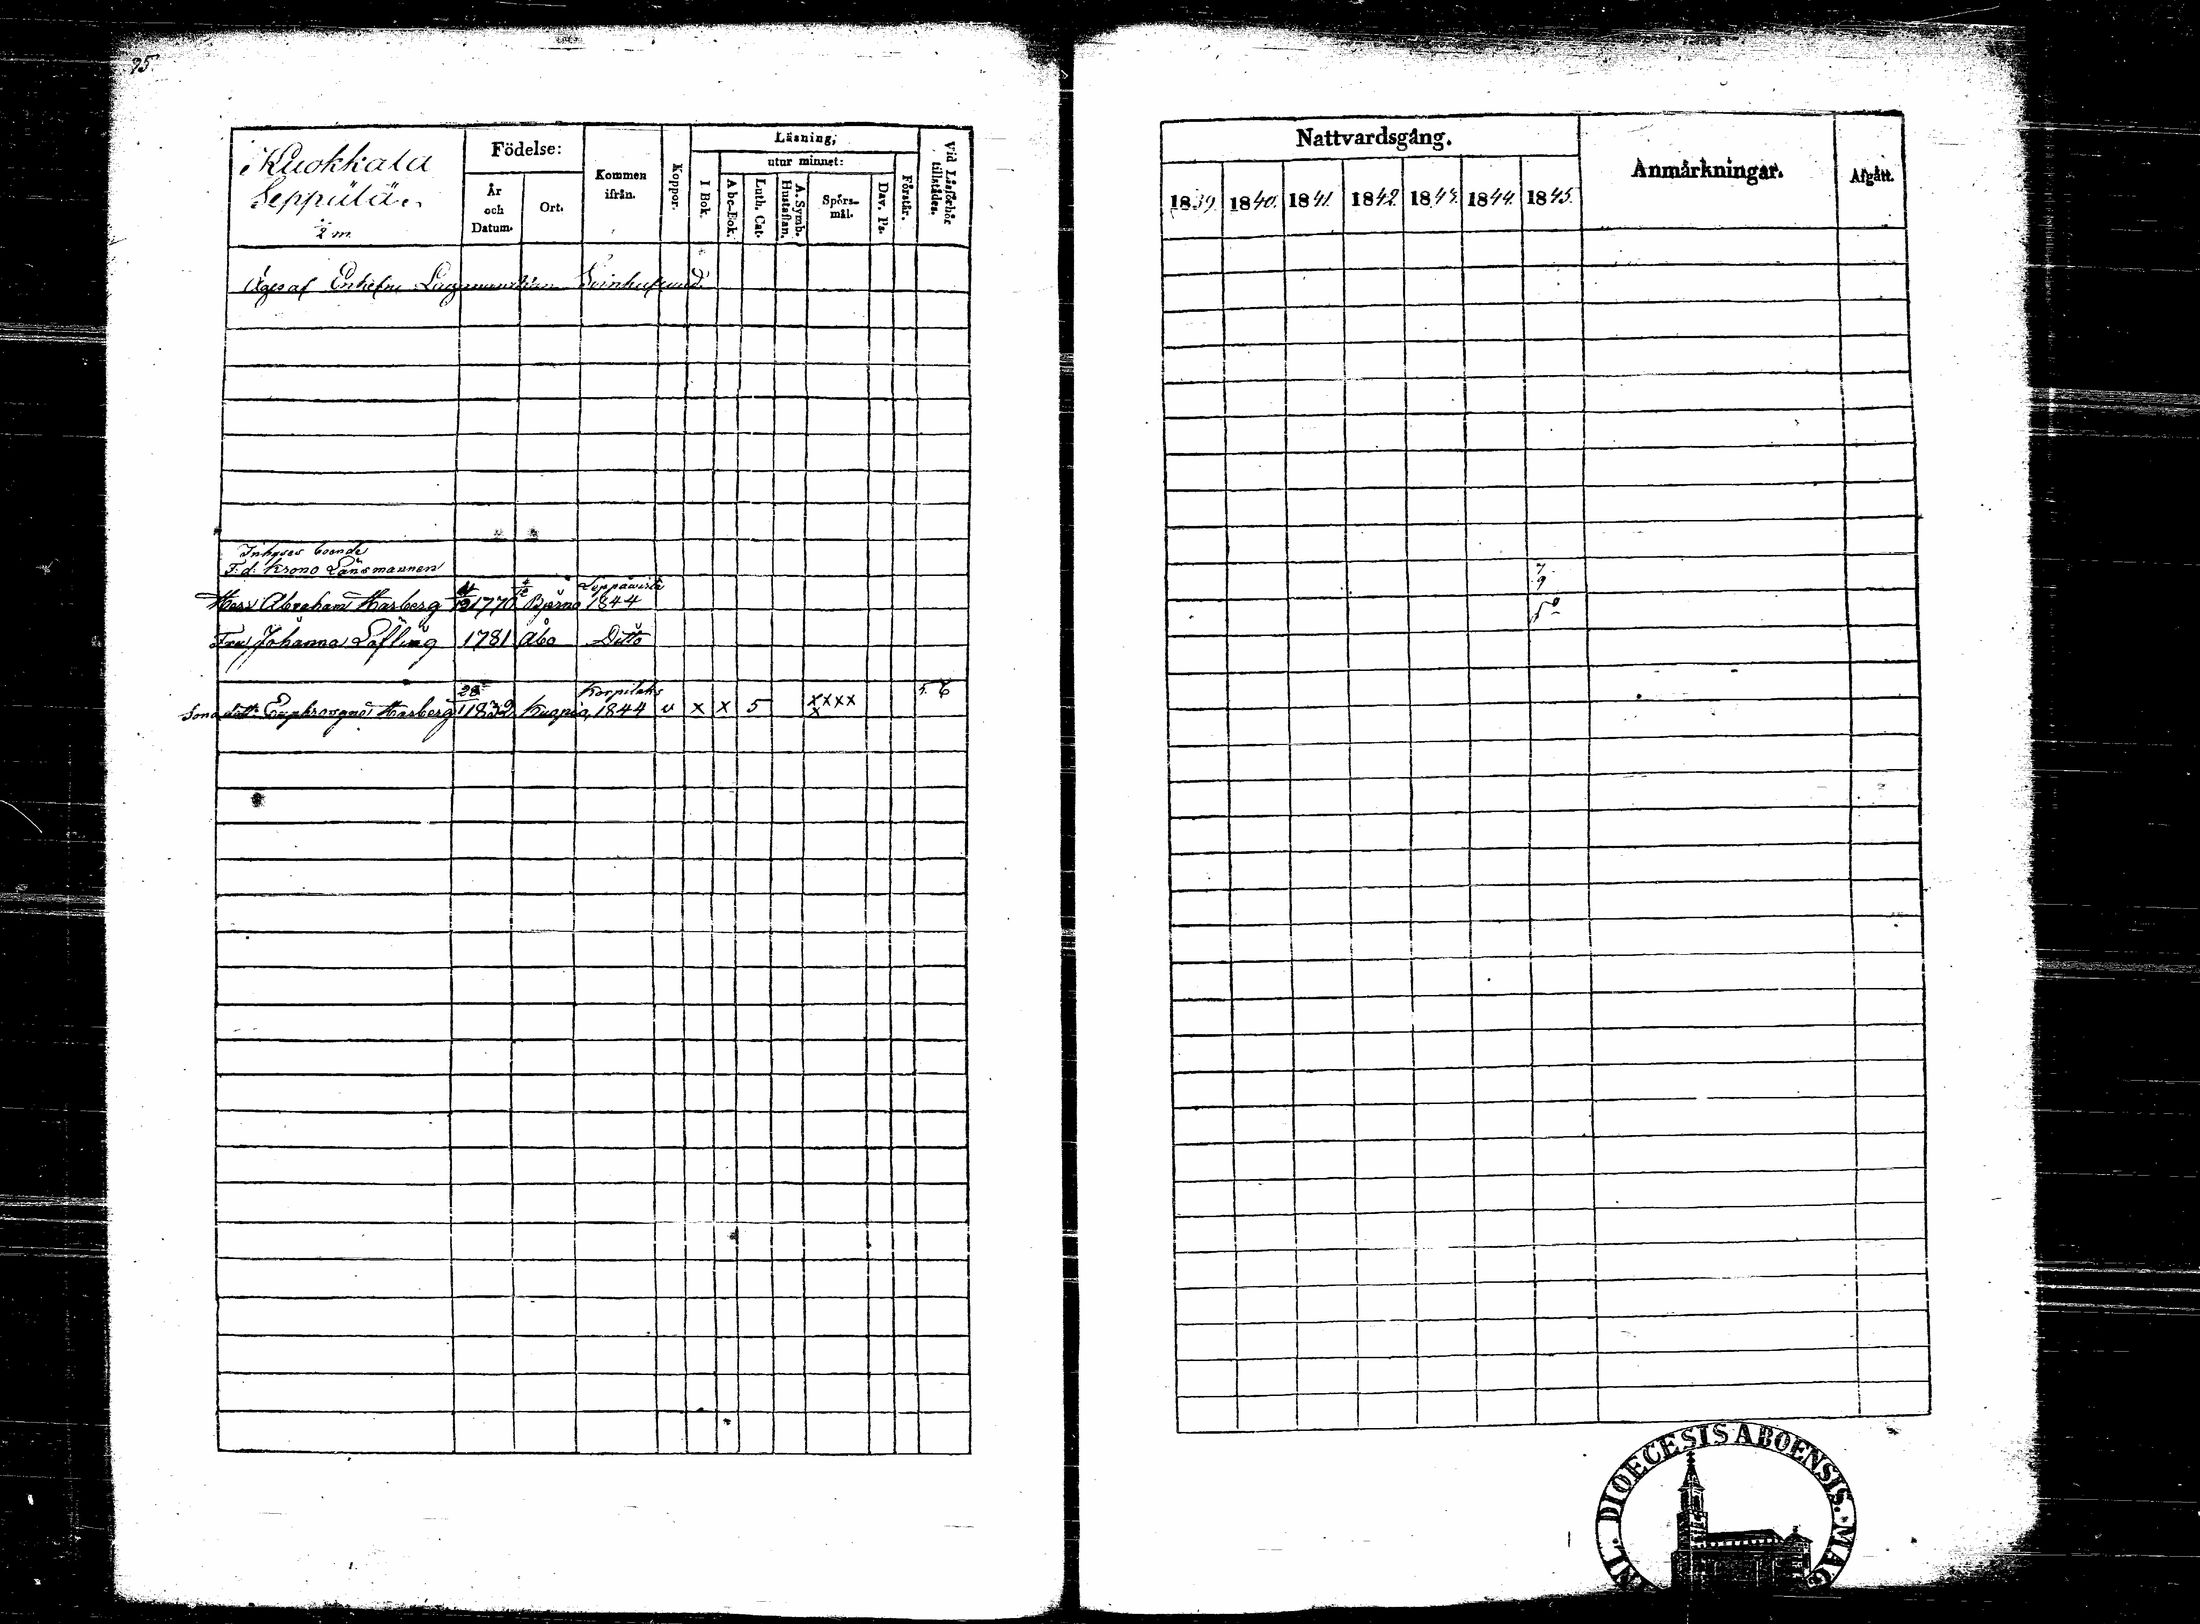 95.
Kuokkala
Seppälä.
Födelse:
År
och
Datum.
Ort.
Kommen
ifrån.
Koppor.
Läsning,
I Bok.
utur minnet:
A b c-Bok.
Luth. Cat.
A. Symb.
Hustaflan.
Spörs-
mål.
Dav. Ps.
Förstår.
Vid Läsförhör
tillstådes.
Äges af Enkefru Svinhufvud.
Inhyses boende
F:d: Krono Länsmannen
Herr Abraham Harberg 1770 Bjerno 1844
Fru Johanna Löfling 1781 Åbo Ditto
28
Korpilaks
Sonadott: Euphrosyne Harberg 1832 Kuopio 1844 v x x 5 xxxx
x
Nattvardsgång.
1839. 1840. 1841 1842. 1843. 1844. 1845.
Anmärkningar.
Afgått.
7
9
DIOECESIS ABOENSIS. MAG